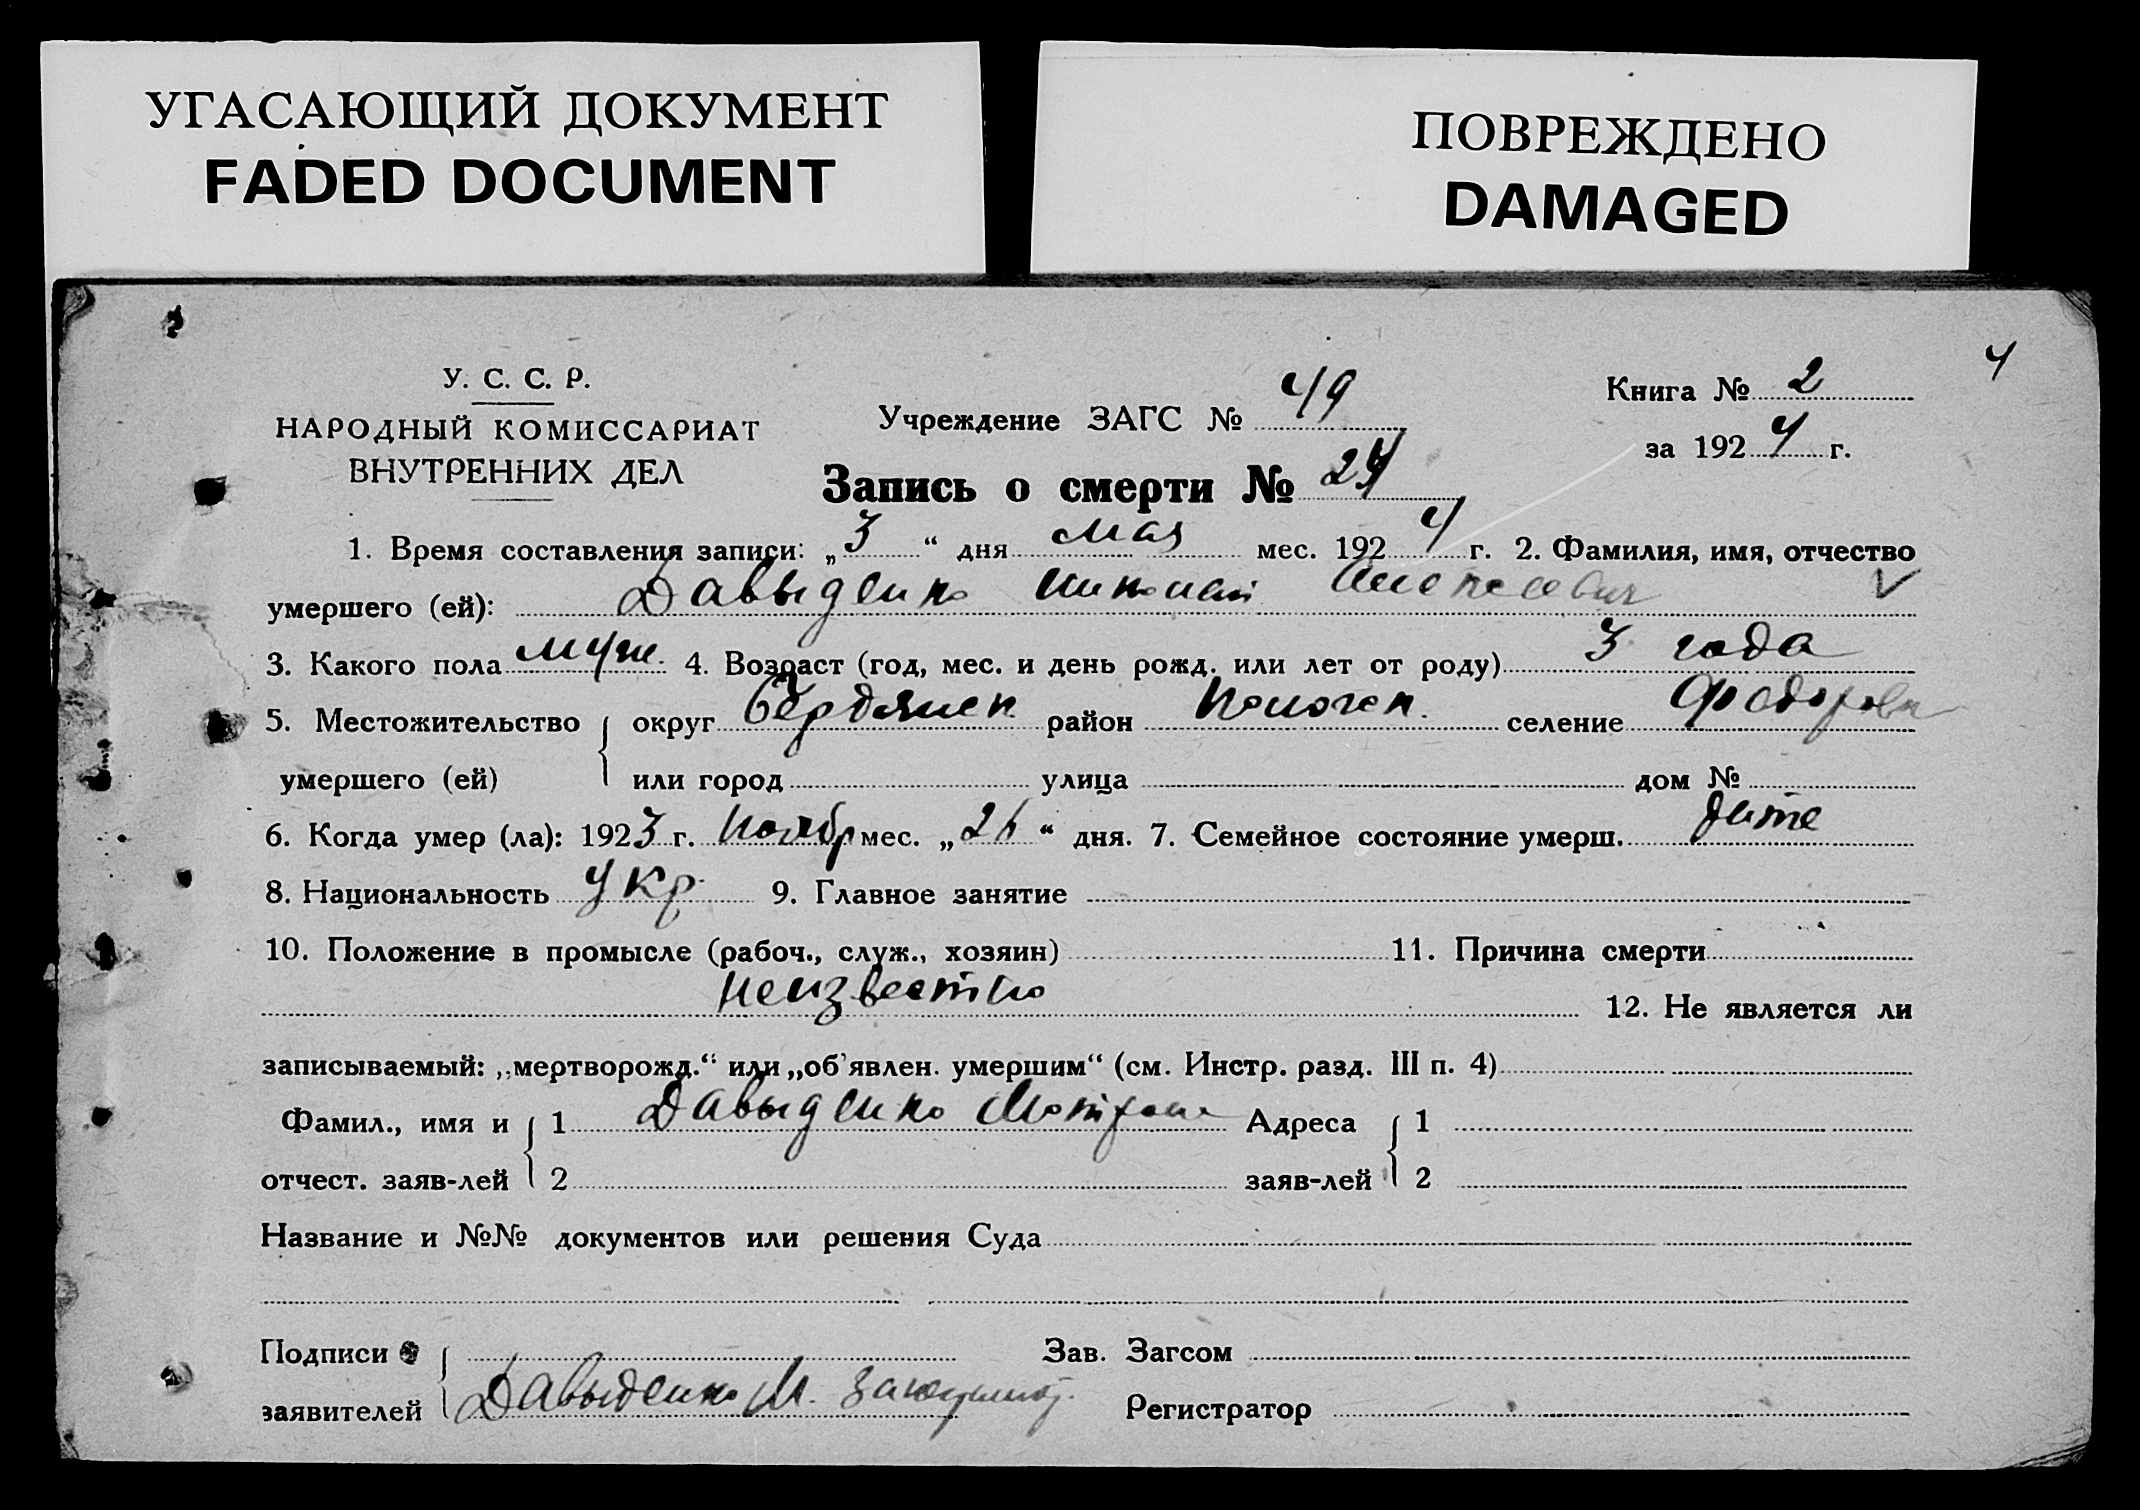 УГАСАЮЩИЙ ДОКУМЕНТ
FADED DOCUMENT
ПОВРЕЖДЕНО
DAMAGED
4
У. С. С. Р.
НАРОДНЫЙ КОМИССАРИАТ
ВНУТРЕННИХ ДЕЛ
Учреждение ЗАГС № 49
Книга № 2
за 1924 г.
Запись о смерти № 24
1. Время составления записи: „3“ дня мая мес. 1924 г. 2. Фамилия, имя, отчество
умершего (ей): Давыденко Николай Алексеевич
3. Какого пола муж. 4. Возраст (год, мес. и день рожд. или лет от роду) 3 года
5. Местожительство умершего (ей) округ Бердянск район Пологск. селение Федоровк
или город улица дом №
6. Когда умер (ла): 1923 г. Ноябр мес. „26“ дня. 7. Семейное состояние умерш. дитё
8. Национальность Укр. 9. Главное занятие
10. Положение в промысле (рабоч., служ., хозяин) 11. Причина смерти
неизвестно 12. Не является ли
записываемый: „мертворожд.“ или „об'явлен. умершим“ (см. Инстр. разд. III п. 4)
Фамил., имя и отчест. заяв-лей 1 Давыденко Мотрона Адреса заяв-лей 1
2 2
Название и №№ документов или решения Суда
Подписи заявителей Зав. Загсом
Давыденко М. Регистратор